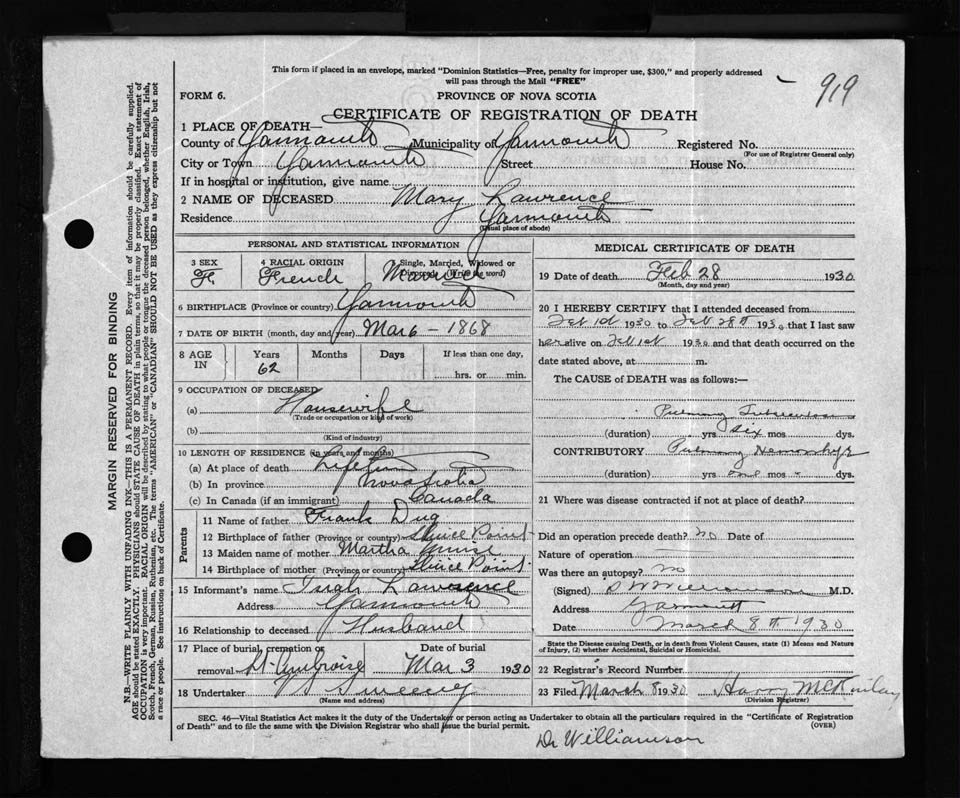 This form if placed in an envelope, marked "Dominion Statistics—Free, penalty for improper use, $300," and properly addressed
will pass through the Mail "FREE"
919
FORM 6.
PROVINCE OF NOVA SCOTIA
CERTIFICATE OF REGISTRATION OF DEATH
1 PLACE OF DEATH—
County of Yarmouth Municipality of Yarmouth Registered No.
(For use of Registrar General only)
City or Town Yarmouth Street House No.
If in hospital or institution, give name
2 NAME OF DECEASED Mary Lawrence
Residence Yarmouth
(Usual place of abode)
PERSONAL AND STATISTICAL INFORMATION
3 SEX 4 RACIAL ORIGIN Single, Married, Widowed or
F. French Married (Write the word)
6 BIRTHPLACE (Province or country) Yarmouth
7 DATE OF BIRTH (month, day and year) Mar 6 – 1868
8 AGE IN Years Months Days If less than one day,
62 hrs. or min.
9 OCCUPATION OF DECEASED
(a) Housewife
(Trade or occupation or kind of work)
(b)
(Kind of industry)
10 LENGTH OF RESIDENCE (in years and months)
(a) At place of death Lifetime
(b) In province Nova Scotia
(c) In Canada (if an immigrant) Canada
Parents
11 Name of father Frank Dug
12 Birthplace of father (Province or country) Sluice Point
13 Maiden name of mother Martha Muise
14 Birthplace of mother (Province or country) Sluice Point
15 Informant's name Lawrence
Address Yarmouth
16 Relationship to deceased Husband
17 Place of burial, cremation or Date of burial
removal St Ambroise Mar 3 1930
18 Undertaker Sweeney
(Name and address)
MEDICAL CERTIFICATE OF DEATH
19 Date of death Feb 28 1930
(Month, day and year)
20 I HEREBY CERTIFY that I attended deceased from
Feb 1st 1930 to Feb 28th 1930 that I last saw
her alive on Feb 1st 1930 and that death occurred on the
date stated above, at m.
The CAUSE of DEATH was as follows:—
Pulmonary Tuberculosis
(duration) yrs six mos dys.
CONTRIBUTORY Pulmonary Hemorrhage
(duration) yrs one mos dys.
21 Where was disease contracted if not at place of death?
Did an operation precede death? no Date of
Nature of operation
Was there an autopsy? no
(Signed) Williamson M.D.
Address Yarmouth
Date March 8th 1930
State the Disease causing Death, or in death from Violent Causes, state (1) Means and Nature
of Injury, (2) whether Accidental, Suicidal or Homicidal.
22 Registrar's Record Number
23 Filed March 8 1930 Harry McKinlay
(Division Registrar)
SEC. 46—Vital Statistics Act makes it the duty of the Undertaker or person acting as Undertaker to obtain all the particulars required in the "Certificate of Registration
of Death" and to file the same with the Division Registrar who shall issue the burial permit. (OVER)
Dr Williamson
MARGIN RESERVED FOR BINDING
N.B.—WRITE PLAINLY WITH UNFADING INK—THIS IS A PERMANENT RECORD. Every item of information should be carefully supplied.
AGE should be stated EXACTLY. PHYSICIANS should STATE CAUSE OF DEATH in plain terms, so that it may be properly classified. Exact statement of
OCCUPATION is very important. RACIAL ORIGIN will be described by stating to what people or tongue the deceased person belonged, whether English, Irish,
Scotch, French, German, Russian, Ruthenian, etc. The terms "AMERICAN" or "CANADIAN" SHOULD NOT BE USED as they express citizenship but not
a race or people. See instructions on back of Certificate.